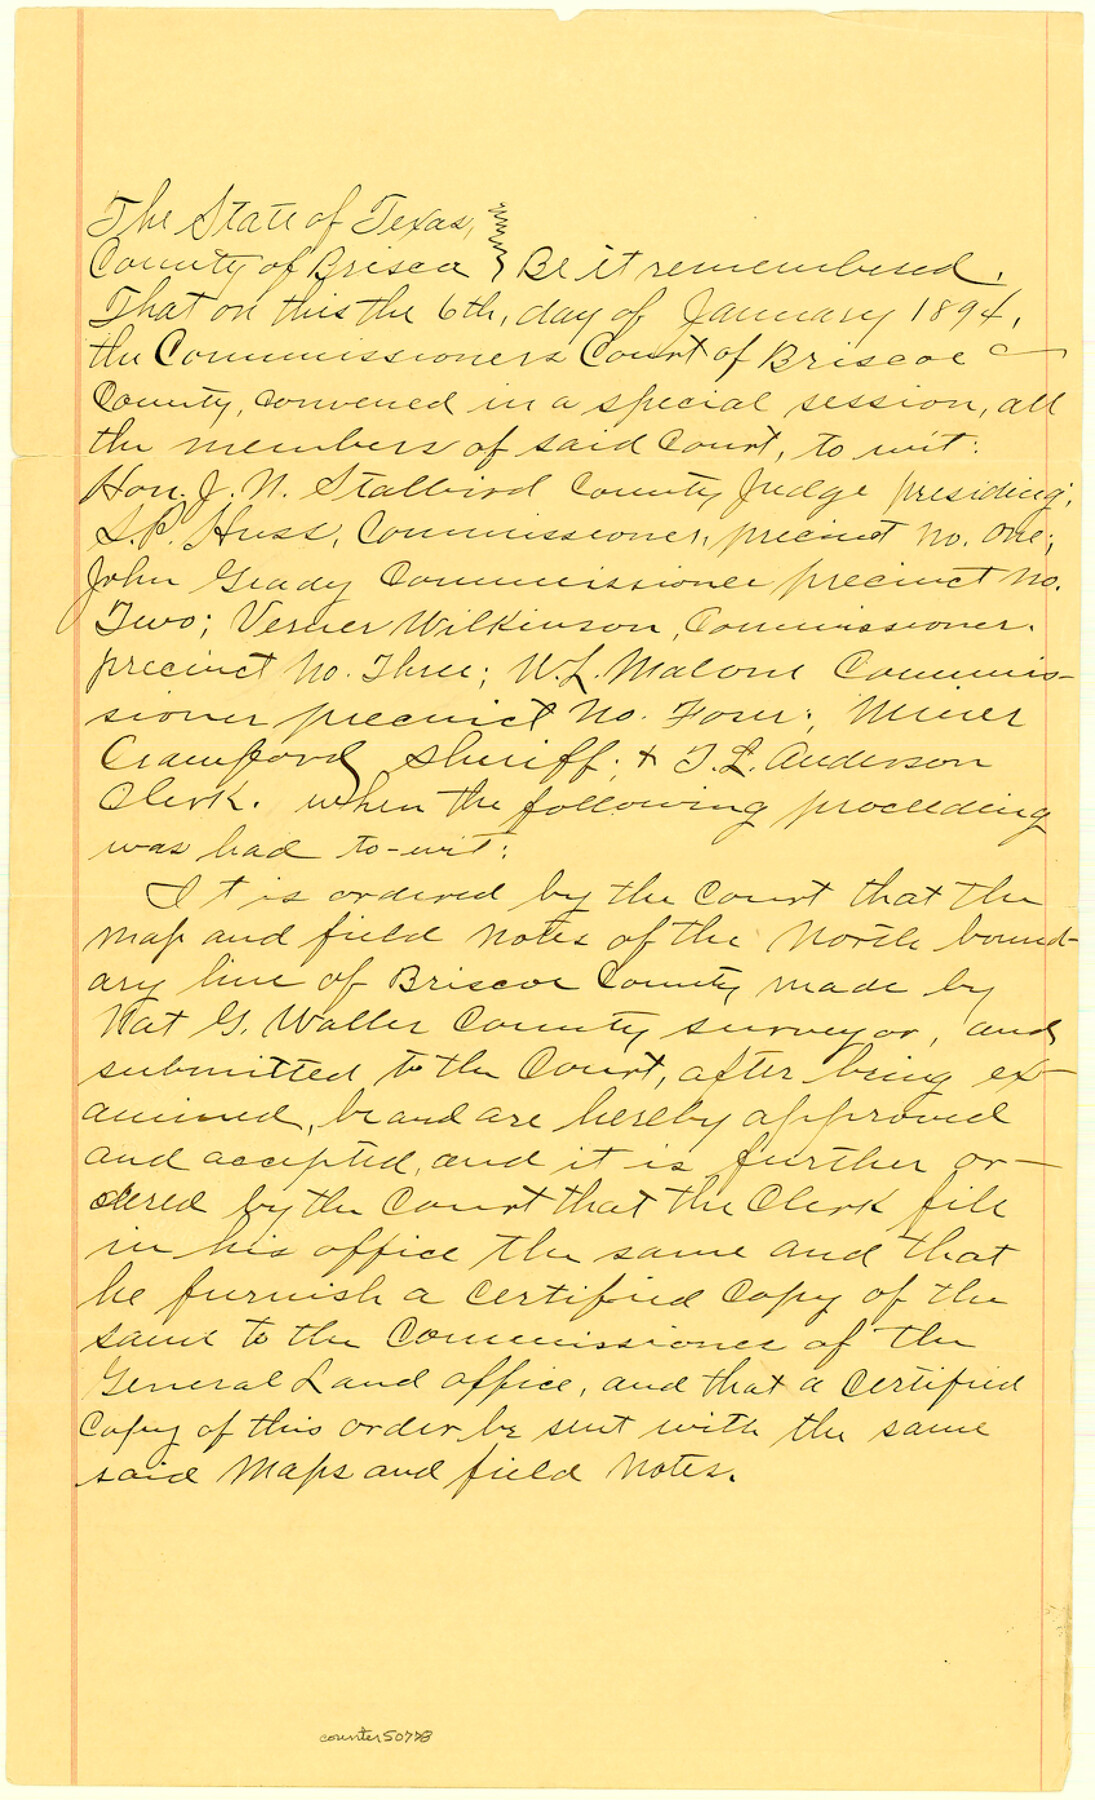 The State of Texas,
County of Brisco } Be it remembered.
That on this the 6th, day of January 1894,
the Commissioners Court of Briscoe
County, convened in a special session, all
the members of said Court, to wit:
Hon. J. N. Stalbird County Judge presiding;
S.P. Huss, Commissioner, precinct No. One;
John Grady Commissioner precinct No.
Two; Verner Wilkinson, Commissioner.
precinct No. Three; W.L. Malone Commis-
sioner precinct No. Four; Miner
Crawford Sheriff; & T.L. Anderson
Clerk. when the following proceeding
was had to-wit:
It is ordered by the Court that the
map and field notes of the North bound-
ary line of Briscoe County made by
Nat G. Waller County surveyor, and
submitted to the Court, after being ex-
amined, be and are hereby approved
and accepted, and it is further or-
dered by the Court that the Clerk file
in his office the same and that
he furnish a certified copy of the
same to the Commissioner of the
General Land office, and that a certified
copy of this order be sent with the same
said Maps and field notes.
counter 50778